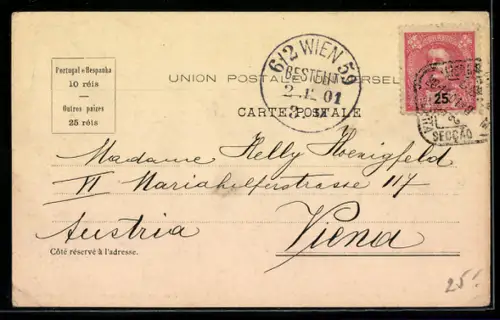 Portugal e Hespanha
10 réis
Outros paizes
25 réis
UNION POSTALE UNIVERSELLE
CARTE POSTALE
6/2 WIEN 59
BESTELLT
01
25
SECÇÃO
Madame Helly Hoenigfeld
VI Mariahilferstrasse 117
Austria
Viena
Côté réservé à l'adresse.
25.